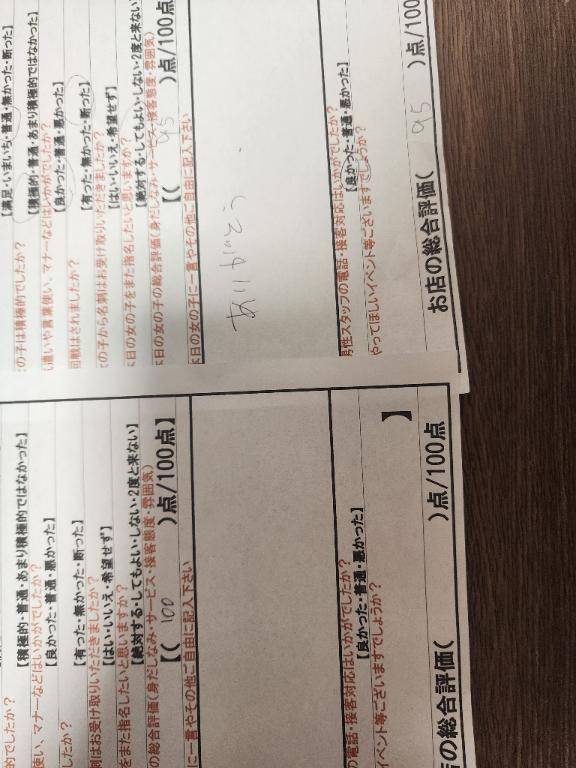 【満足・いまいち・普通・無かった・断った】
の子は積極的でしたか?
【積極的・普通・あまり積極的ではなかった】
遣いや言葉使い、マナーなどはいかがでしたか?
【良かった・普通・悪かった】
回戦はされましたか?
【有った・無かった・断った】
の子から名刺はお受け取りいただきましたか?
【はい・いいえ・希望せず】
本日の女の子をまた指名したいと思いますか?
【絶対する・してもよい・しない・2度と来ない】
本日の女の子の総合評価(身だしなみ・サービス・接客態度・雰囲気)
【( 95 )点/100点
本日の女の子に一言やその他ご自由に記入下さい
ありがとう
男性スタッフの電話・接客対応はいかがでしたか?
【良かった・普通・悪かった】
やってほしいイベント等ございますでしょうか?
お店の総合評価( 95 )点/100
的でしたか?
【積極的・普通・あまり積極的ではなかった】
使い、マナーなどはいかがでしたか?
【良かった・普通・悪かった】
したか?
【有った・無かった・断った】
刺はお受け取りいただきましたか?
【はい・いいえ・希望せず】
をまた指名したいと思いますか?
【絶対する・してもよい・しない・2度と来ない】
の総合評価(身だしなみ・サービス・接客態度・雰囲気)
【( 100 )点/100点】
に一言やその他ご自由に記入下さい
の電話・接客対応はいかがでしたか?
【良かった・普通・悪かった】
イベント等ございますでしょうか?
】
店の総合評価( )点/100点